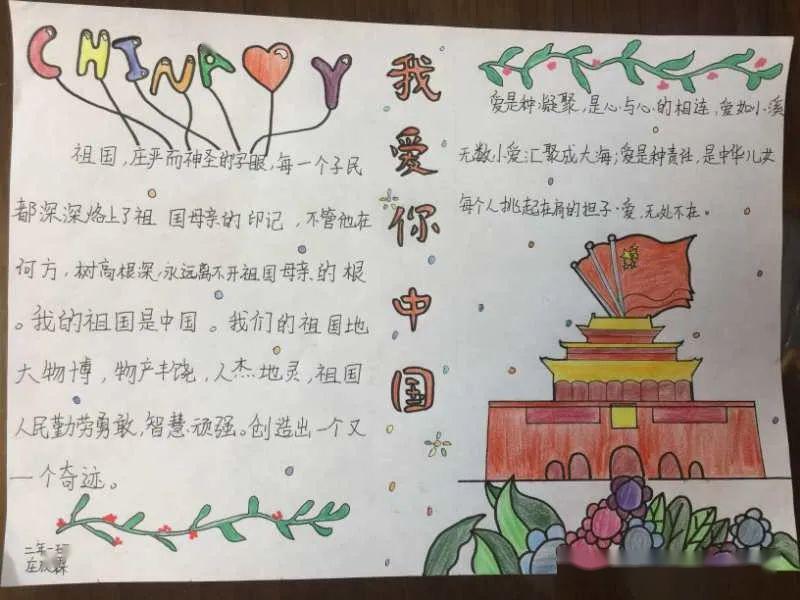 CHINA Y
我爱你中国
祖国，庄严而神圣的字眼，每一个子民
都深深烙上了祖国母亲的印记，不管他在
何方，树高根深，永远离不开祖国母亲的根
。我的祖国是中国。我们的祖国地
大物博，物产丰饶，人杰地灵，祖国
人民勤劳勇敢，智慧顽强。创造出一个又
一个奇迹。
二年一班
爱是种凝聚，是心与心的相连，爱如小溪
无数小爱汇聚成大海；爱是种责任，是中华儿女
每个人挑起在肩的担子。爱，无处不在。